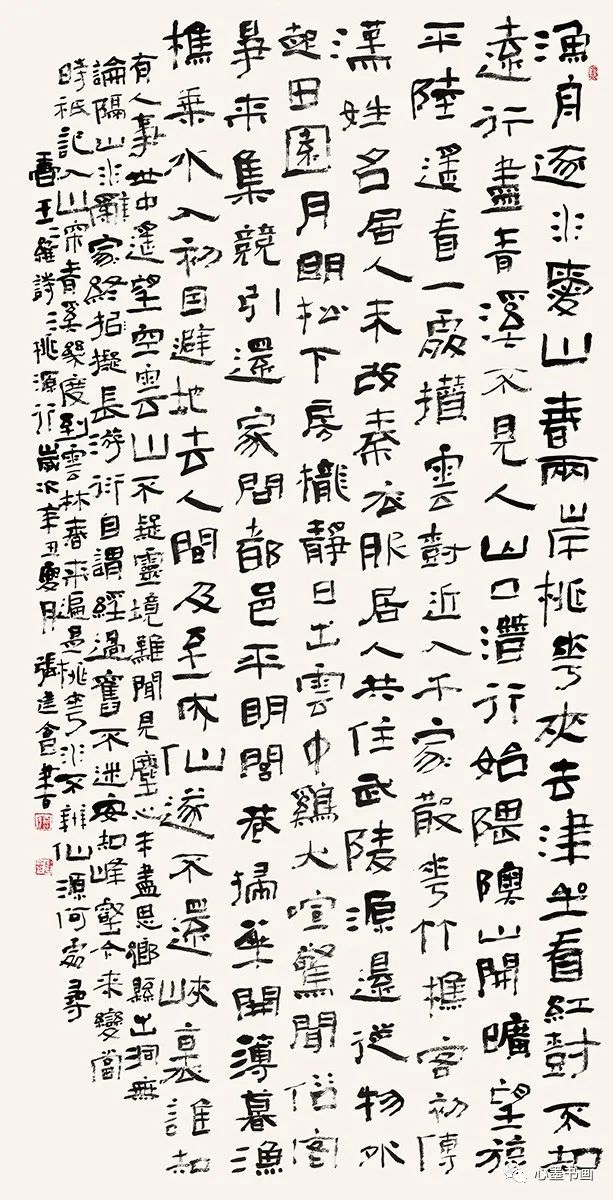 漁舟逐水愛山春兩岸桃花夾去津坐看紅樹不知
遠行盡青溪不見人山口潛行始隈隩山開曠望旋
平陸遙看一處攢雲樹近入千家散花竹樵客初傳
漢姓名居人未改秦衣服居人共住武陵源還從物外
起田園月明松下房櫳靜日出雲中雞犬喧驚聞俗客
爭來集競引還家問都邑平明閭巷掃花開薄暮漁
樵乘水入初因避地去人間及至成仙遂不還峽裏誰知
有人事世中遙望空雲山不疑靈境難聞見塵心未盡思鄉縣出洞無
論隔山水辭家終招擬長游衍自謂經過舊不迷安知峰壑今來變當
時祇記入山深青溪幾度到雲林春來遍是桃花水不辨仙源何處尋
書王維詩桃源行歲次辛丑夏月張建會書
心墨书画